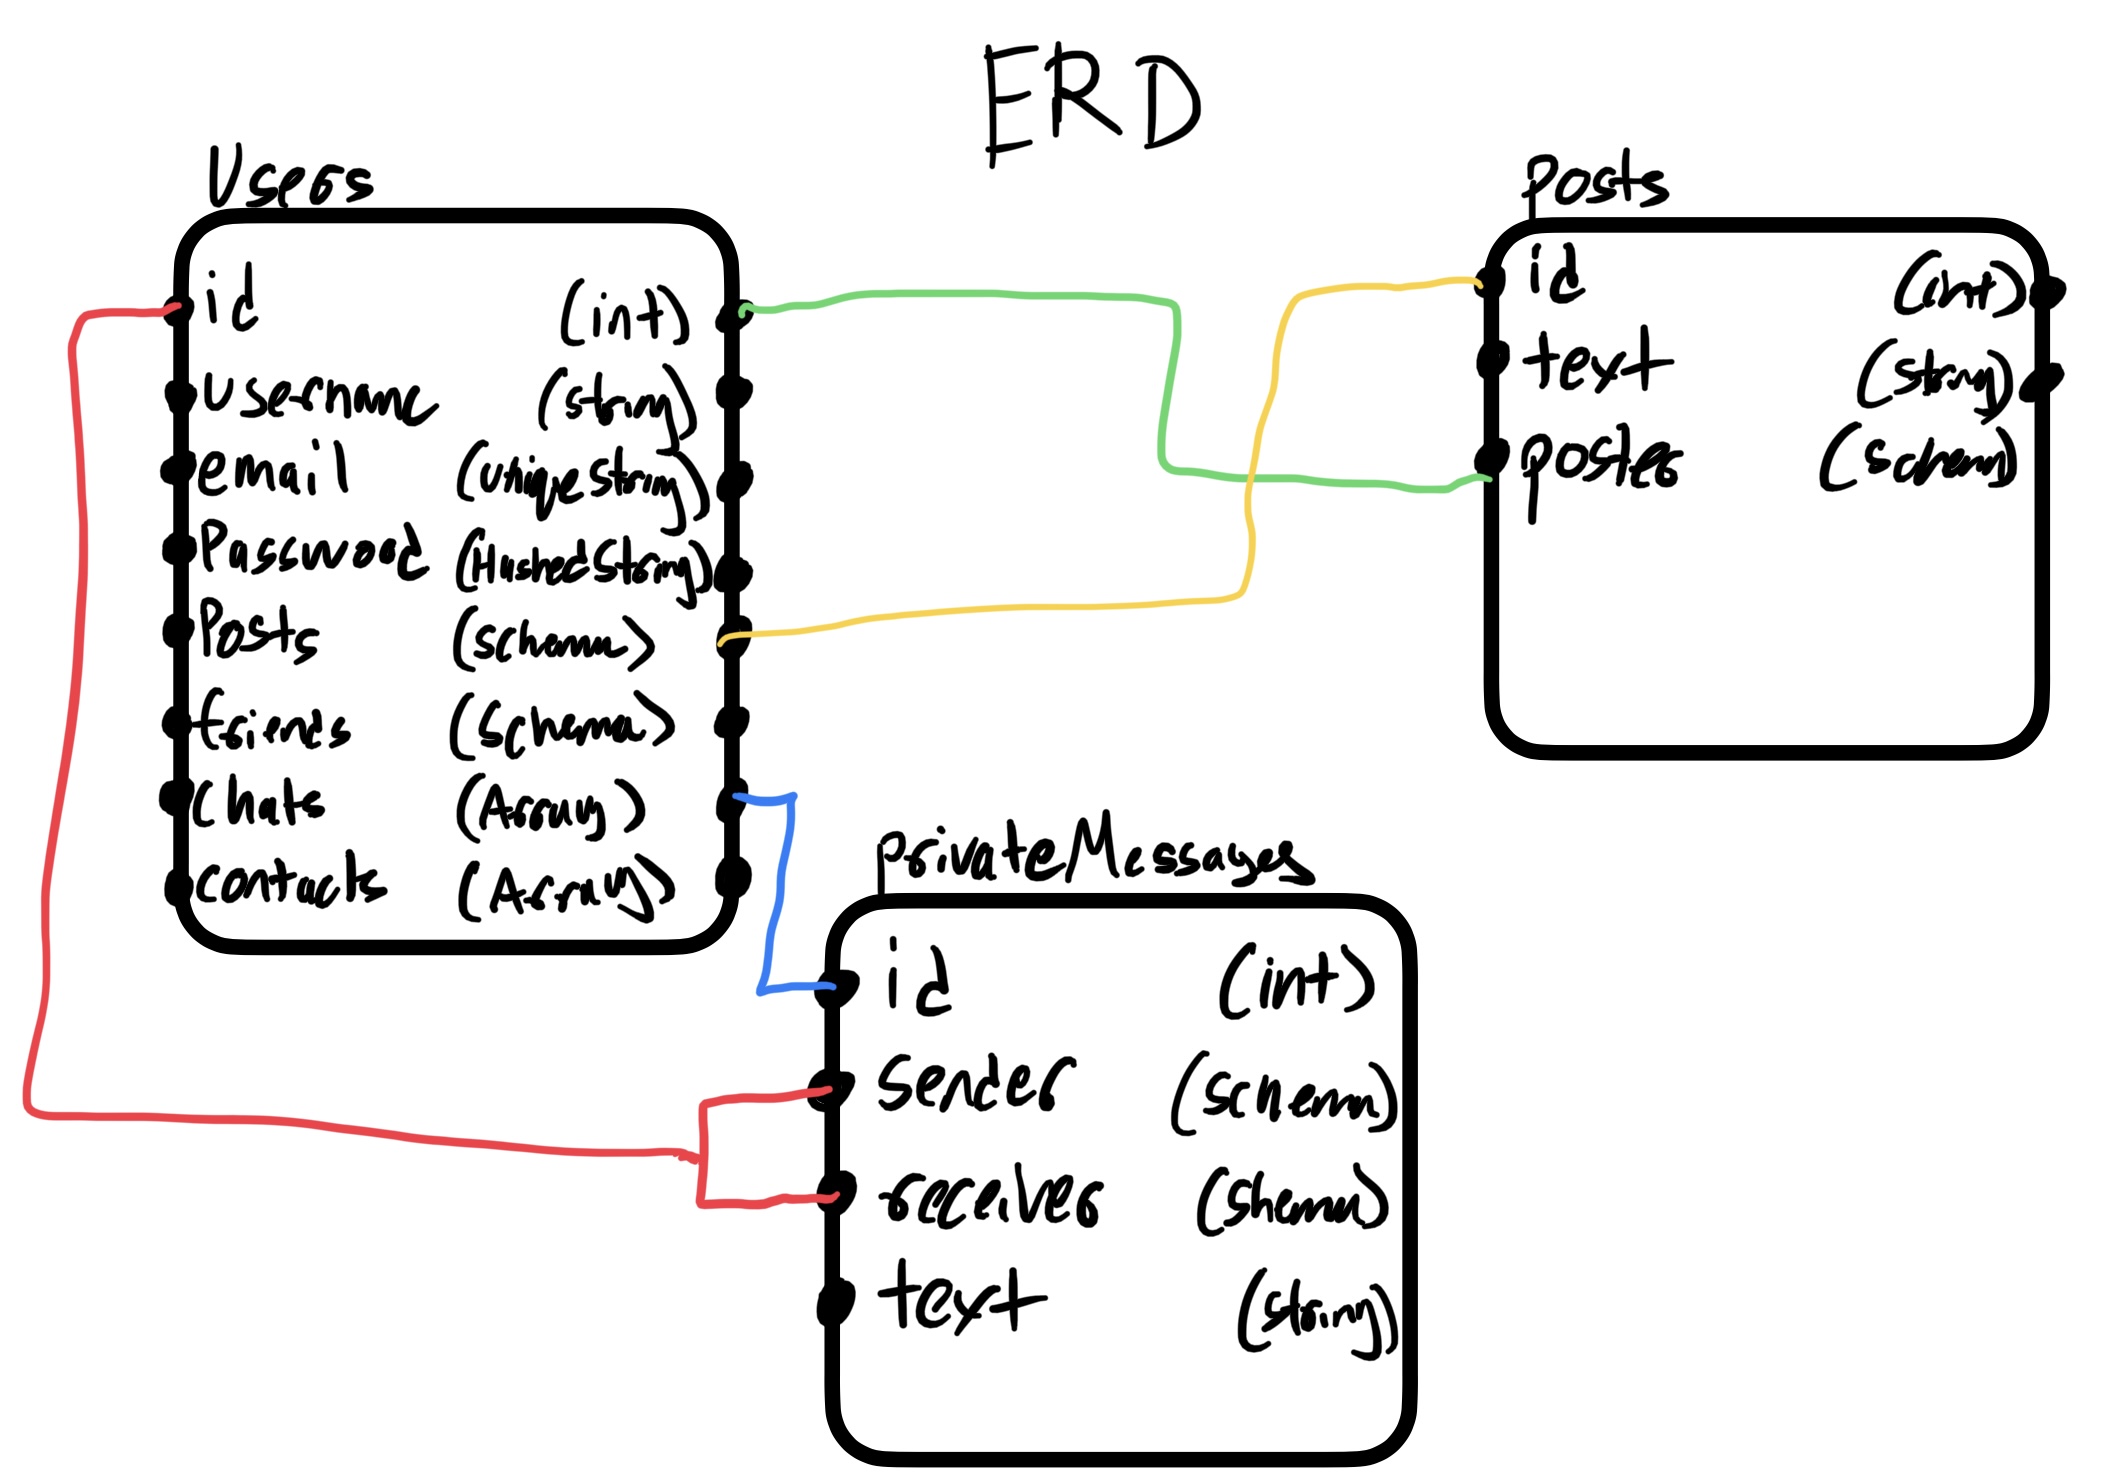 ERD
Users
id (int)
username (string)
email (uniqueString)
Password (HashedString)
Posts (schema)
friends (Schema)
chats (Array)
contacts (Array)
posts
id (int)
text (string)
poster (schema)
privateMessages
id (int)
sender (schema)
receiver (shema)
text (string)